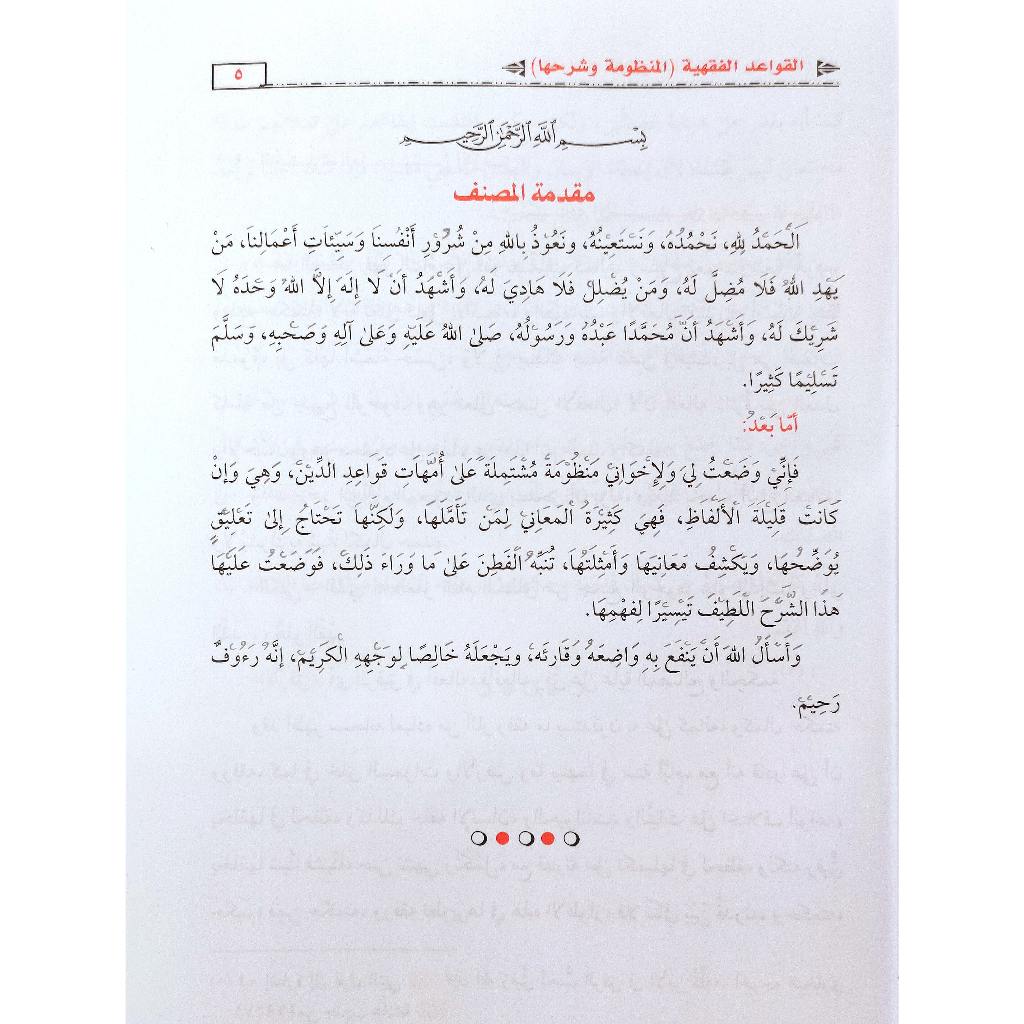 القواعد الفقهية (المنظومة وشرحها)
٥
بِسْمِ اللَّهِ الرَّحْمَٰنِ الرَّحِيمِ
مقدمة المصنف
اَلْحَمْدُ لِلهِ، نَحْمَدُهُ، وَنَسْتَعِيْنُهُ، ونَعُوْذُ بِاللهِ مِنْ شُرُوْرِ أَنْفُسِنَا وَسَيِّئَاتِ أَعْمَالِنَا، مَنْ
يَهْدِ اللهُ فَلَا مُضِلَّ لَهُ، وَمَنْ يُضْلِلْ فَلَا هَادِيَ لَهُ، وَأَشْهَدُ أَنْ لا إِلَهَ إِلاَّ اللهُ وَحْدَهُ لَا
شَرِيْكَ لَهُ، وَأَشْهَدُ أَنَّ مُحَمَّدًا عَبْدُهُ وَرَسُوْلُهُ، صَلىٰ اللهُ عَلَيْهِ وَعَلىٰ آلِهِ وَصَحْبِهِ، وَسَلَّمَ
تَسْلِيْمًا كَثِيْرًا.
أمَّا بَعْدُ:
فَإِنِّيْ وَضَعْتُ لِيْ وَلِإِخْوَانِيْ مَنْظُوْمَةً مُشْتَمِلَةً عَلىٰ أُمَّهَاتِ قَوَاعِدِ الدِّيْنِ، وَهِيَ وَإِنْ
كَانَتْ قَلِيْلَةَ الْأَلْفَاظِ، فَهِيَ كَثِيْرَةُ الْمَعَانِيْ لِمَنْ تَأَمَّلَهَا، وَلَكِنَّهَا تَحْتَاجُ إِلىٰ تَعْلِيْقٍ
يُوَضِّحُهَا، وَيَكْشِفُ مَعَانِيَهَا وَأَمْثِلَتَهَا، تُنَبِّهُ الْفَطِنَ عَلىٰ مَا وَرَاءَ ذَلِكَ، فَوَضَعْتُ عَلَيْهَا
هَذَا الشَّرْحَ اللَّطِيْفَ تَيْسِيْرًا لِفَهْمِهَا.
وَأَسْأَلُ اللهَ أَنْ يَنْفَعَ بِهِ وَاضِعَهُ وَقَارِئَه، ويَجْعَلَهُ خَالِصًا لِوَجْهِهِ الْكَرِيْمِ، إِنَّهُ رَءُوْفٌ
رَحِيْمٌ.